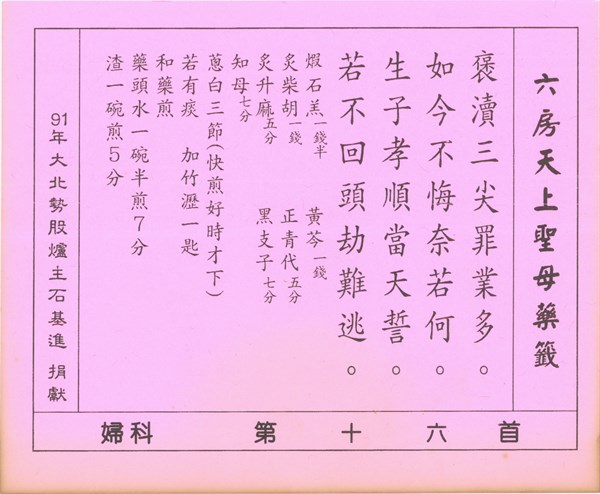 六房天上聖母藥籤
褒瀆三尖罪業多。
如今不悔奈若何。
生子孝順當天誓。
若不回頭劫難逃。
煆石羔一錢半 黃芩一錢
炙柴胡一錢 正青代五分
炙升麻五分 黑支子七分
知母七分
蔥白三節(快煎好時才下)
若有痰 加竹瀝一匙
和藥煎
藥頭水一碗半煎7分
渣一碗煎5分
91年大北勢股爐主石基進 捐獻
婦科 第十六首